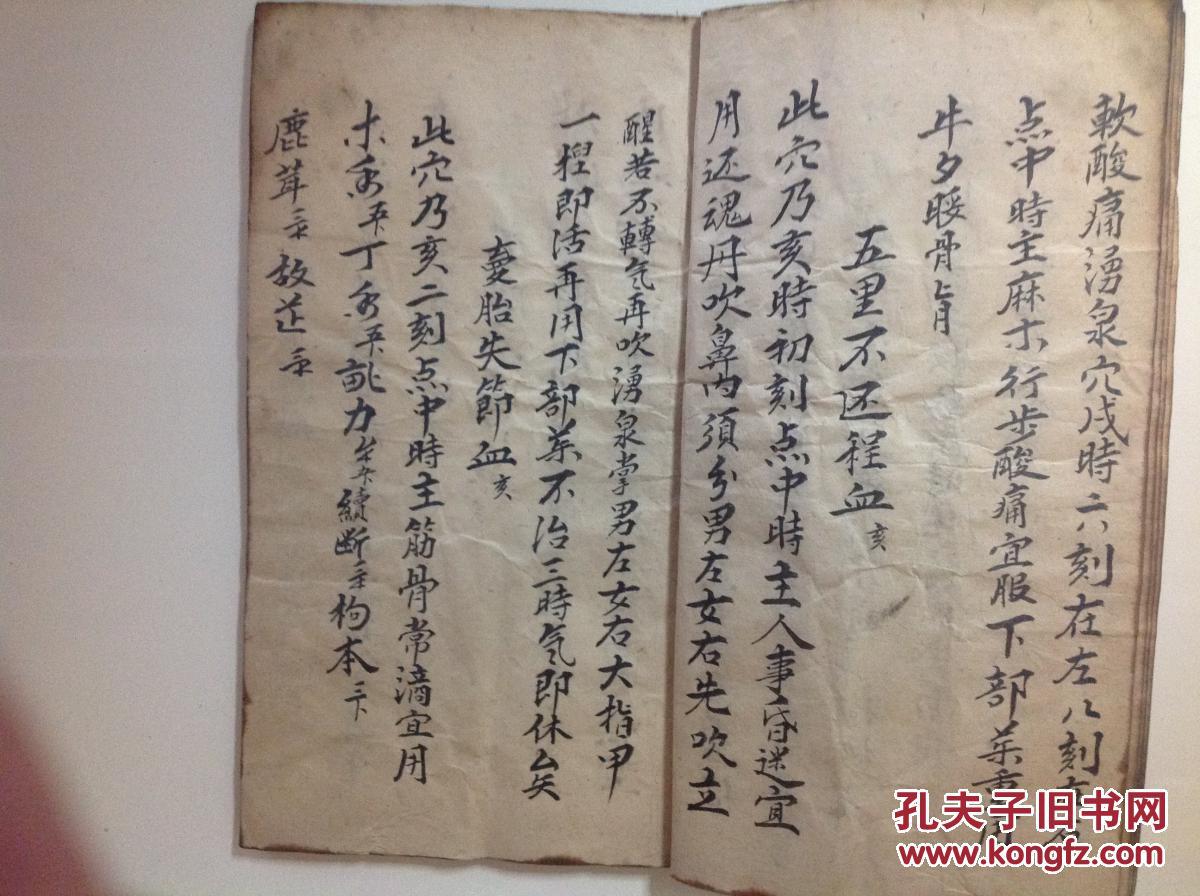 軟酸痛湧泉穴戌時六刻在左八刻在右
点中時主麻木行步酸痛宜服下部藥重用
牛夕脮骨
五里不还程血亥
此穴乃亥時初刻点中時主人事昏迷宜
用还魂丹吹鼻内須分男左女右先吹立
醒若不轉気再吹湧泉掌男左女右大指甲
一揑即活再用下部藥不治三時気即休矣
胎失節血亥
此穴乃亥二刻点中時主筋骨常滴宜用
木香丁香力續断枸本
鹿茸三
孔夫子旧书网
www.kongfz.com